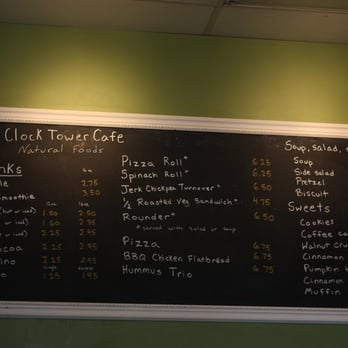 Clock Tower Cafe
Natural Foods
2.75
3.50
12oz 16oz
1.80 2.50
2.25 2.95
2.25 2.95
2.25 2.95
2.25 2.95
single double
1.25 1.95
Pizza Roll* 6.25
Spinach Roll* 6.25
Jerk Chickpea Turnover* 6.50
1/2 Roasted Veg Sandwich* 4.75
Rounder* 6.50
*served with salad or soup
Pizza 6.75
BBQ Chicken Flatbread 6.75
Hummus Trio 6.75
Soup, salad,
Soup
Side salad
Pretzel
Biscuit
Sweets
Cookies
Coffee
Walnut
Cinnamon
Pumpkin
Cinnamon
Muffin